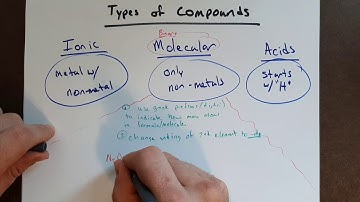 Types of Compounds
Binary
Ionic
Molecular
Acids
Metal w/
non-metal
only
non-metals
Starts
w/ "H"
① use greek prefixes
to indicate how many atoms
in formula/molecule
② change ending of 2nd element to -ide